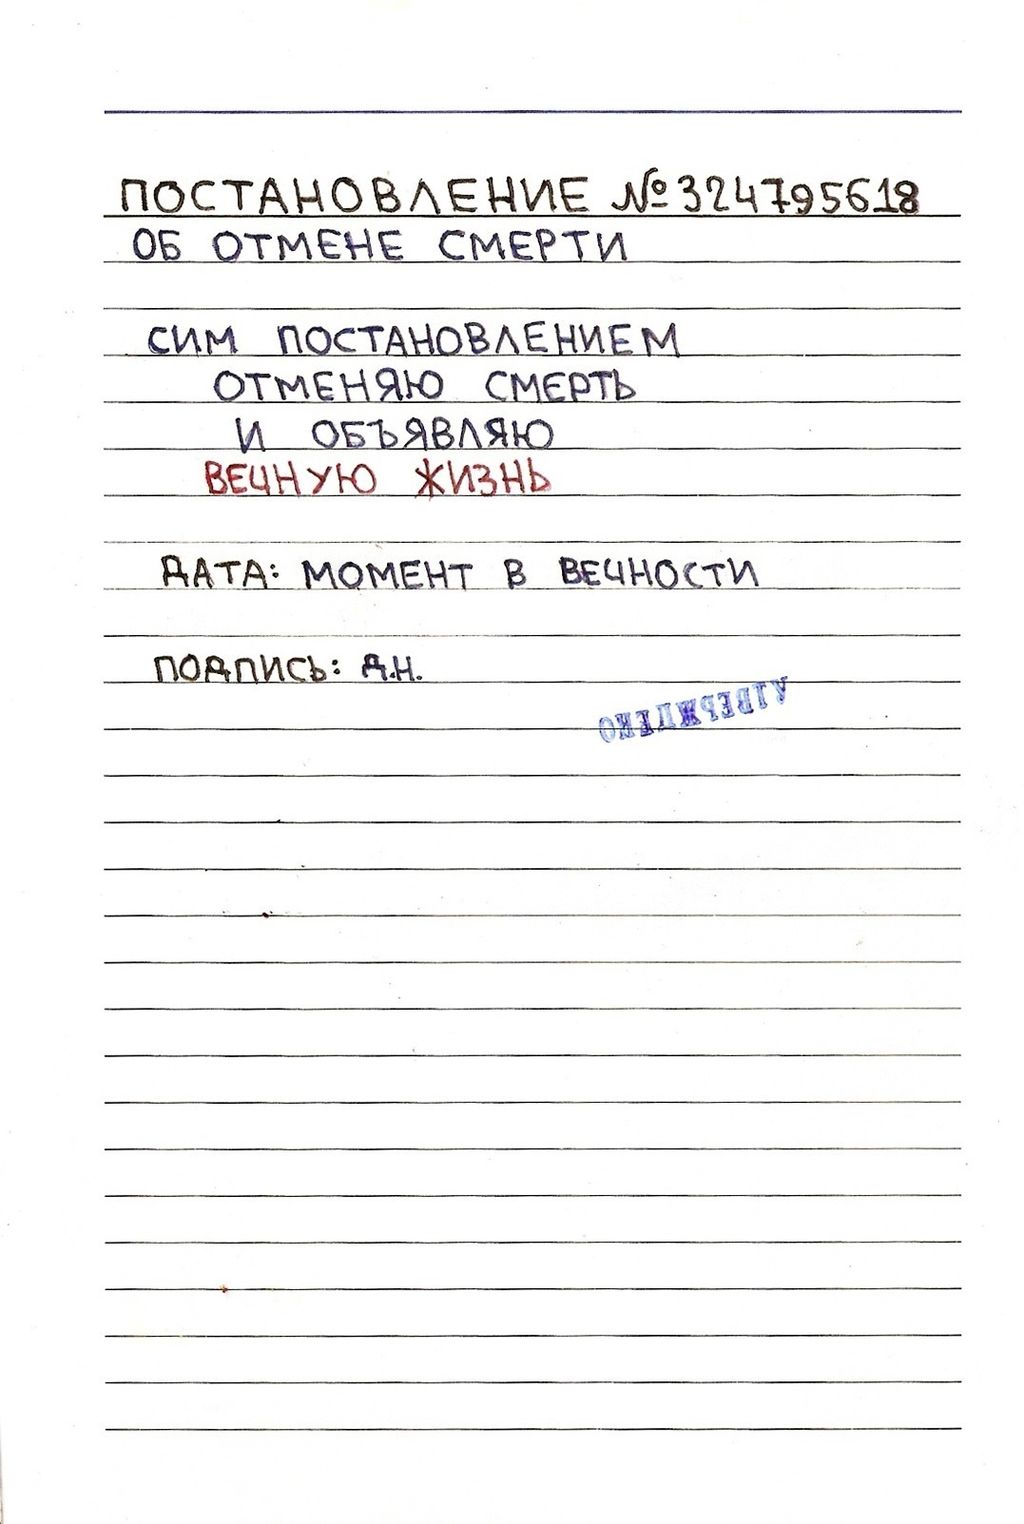 ПОСТАНОВЛЕНИЕ №324795618
ОБ ОТМЕНЕ СМЕРТИ
СИМ ПОСТАНОВЛЕНИЕМ
ОТМЕНЯЮ СМЕРТЬ
И ОБЪЯВЛЯЮ
ВЕЧНУЮ ЖИЗНЬ
ДАТА: МОМЕНТ В ВЕЧНОСТИ
ПОДПИСЬ: Д.Н.
УТВЕРЖДЕНО